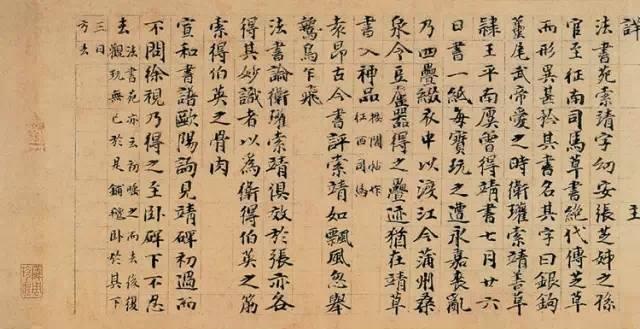 法書苑索靖字幼安張芝姊之孫
官至征南司馬草書絕代傳芝草
而形異甚矜其書名其字曰銀鉤
蠆尾武帝愛之時衛瓘索靖善草
隸王平南廙曾得靖書七月廿六
日書一紙每寶玩之遭永嘉喪亂
乃四疊綴衣中以渡江今蒲州桑
泉令豆盧器得之疊迹猶在靖草
書入神品
按閣帖作
征西司馬
袁昂古今書評索靖如飄風忽舉
鷙鳥乍飛
法書論衛瓘索靖俱效於張亦各
得其妙識者以為衛得伯英之筋
索得伯英之骨肉
宣和書譜歐陽詢見靖碑初過而
不問徐視乃得之至臥碑下不忍
去
法書苑亦云初唾之而去後復
去觀玩無已於是鋪氊臥於其下
三日
方去